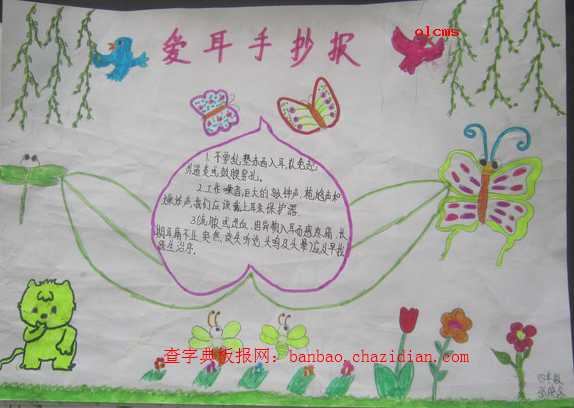 olcms
爱耳手抄报
1.不要乱垫东西入耳,以免起
外道炎或鼓膜穿孔。
2.工作噪音,巨大的敲钟声,炮炮声和
爆炸声,我们应该戴上耳朵保护器.
3.流脓或出血,因异物入耳而感疼痛,长
期耳痛不止,突然,丧失听说,失鸣及头晕)应及早找
医生治疗.
查字典板报网:banbao.chazidian.com
四年级